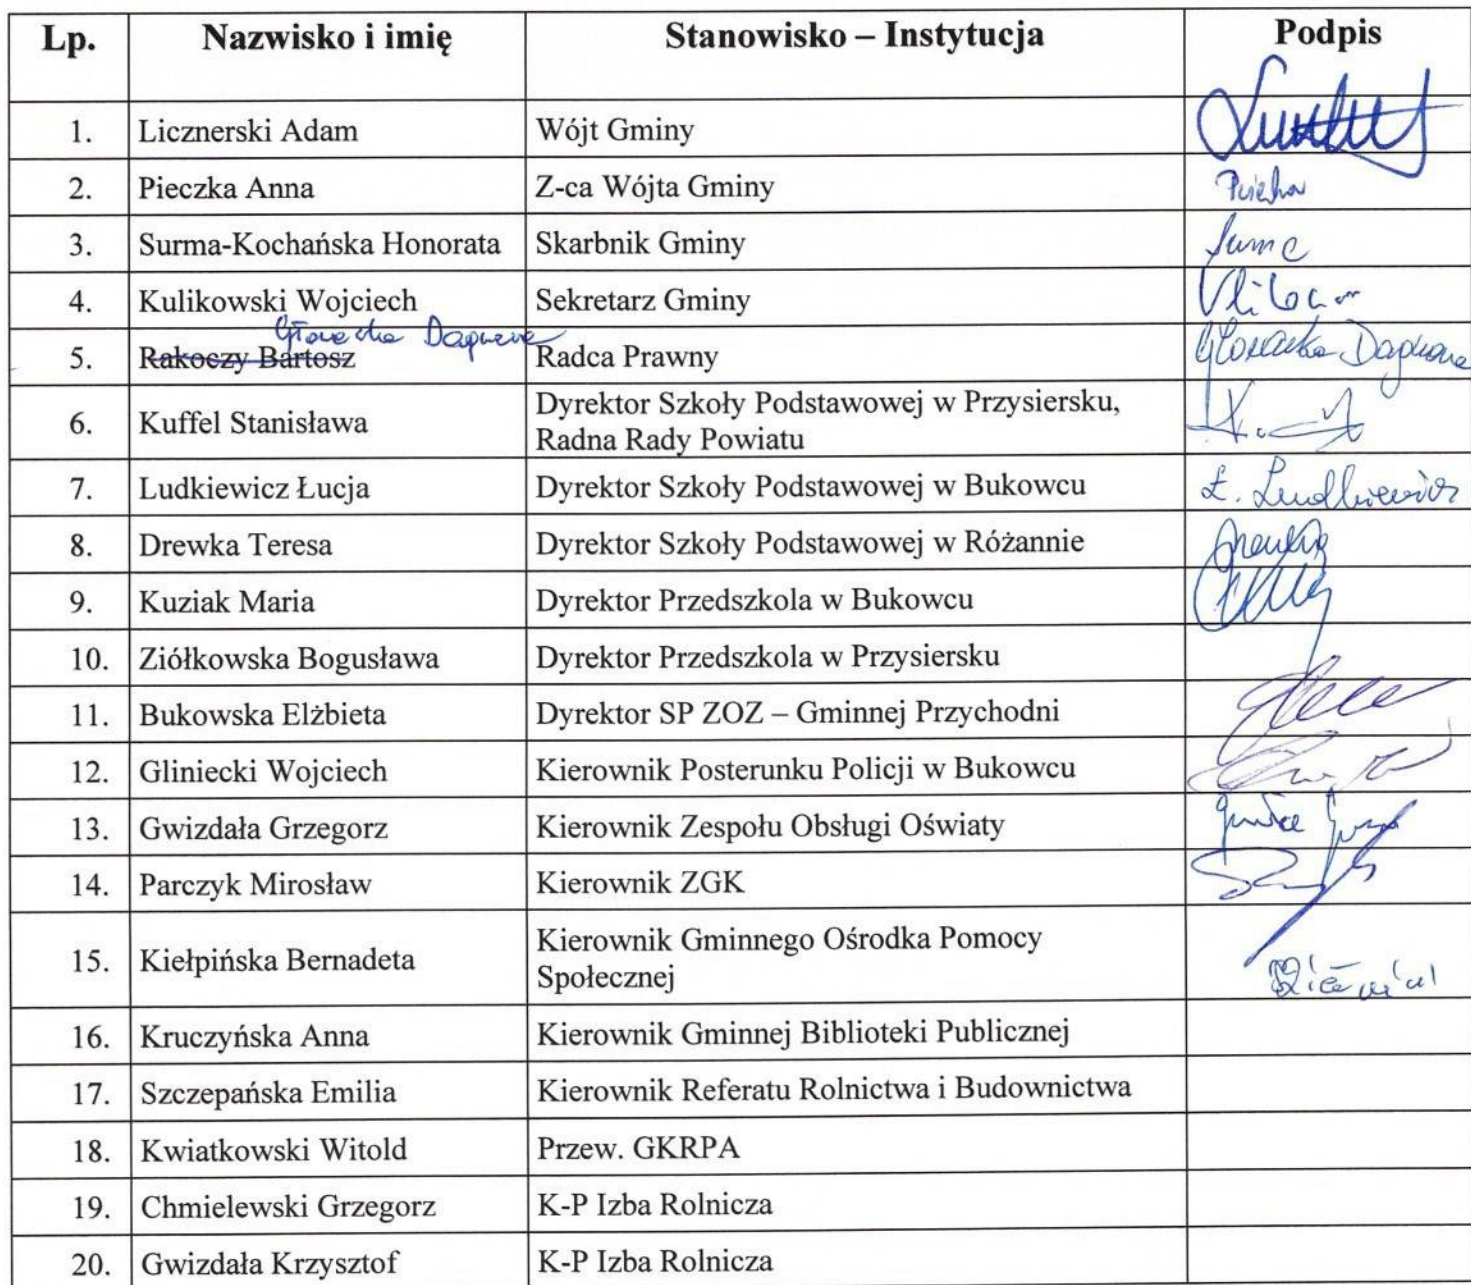 Lp. Nazwisko i imię Stanowisko – Instytucja Podpis
1. Licznerski Adam Wójt Gminy
2. Pieczka Anna Z-ca Wójta Gminy
3. Surma-Kochańska Honorata Skarbnik Gminy
4. Kulikowski Wojciech Sekretarz Gminy
5. Rakoczy Bartosz Radca Prawny
6. Kuffel Stanisława Dyrektor Szkoły Podstawowej w Przysiersku,
Radna Rady Powiatu
7. Ludkiewicz Łucja Dyrektor Szkoły Podstawowej w Bukowcu Ł. Ludkiewicz
8. Drewka Teresa Dyrektor Szkoły Podstawowej w Różannie
9. Kuziak Maria Dyrektor Przedszkola w Bukowcu
10. Ziółkowska Bogusława Dyrektor Przedszkola w Przysiersku
11. Bukowska Elżbieta Dyrektor SP ZOZ – Gminnej Przychodni
12. Gliniecki Wojciech Kierownik Posterunku Policji w Bukowcu
13. Gwizdała Grzegorz Kierownik Zespołu Obsługi Oświaty
14. Parczyk Mirosław Kierownik ZGK
15. Kiełpińska Bernadeta Kierownik Gminnego Ośrodka Pomocy
Społecznej
16. Kruczyńska Anna Kierownik Gminnej Biblioteki Publicznej
17. Szczepańska Emilia Kierownik Referatu Rolnictwa i Budownictwa
18. Kwiatkowski Witold Przew. GKRPA
19. Chmielewski Grzegorz K-P Izba Rolnicza
20. Gwizdała Krzysztof K-P Izba Rolnicza